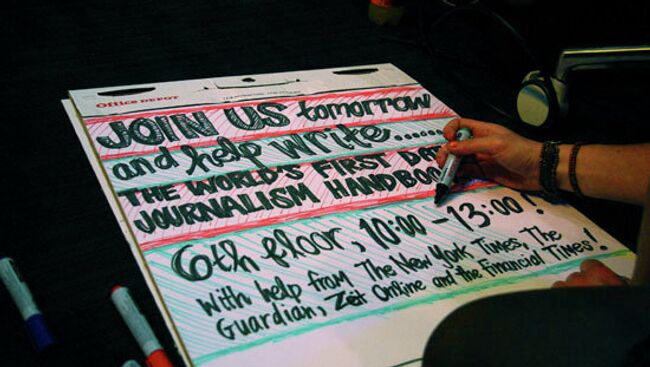 Office DEPOT
JOIN US tomorrow
and help write......
THE WORLD'S FIRST DA
JOURNALISM HANDBOOK
6th floor, 10:00-13:00!
With help from The New York Times, The
Guardian, Zeit Online and the Financial Times!